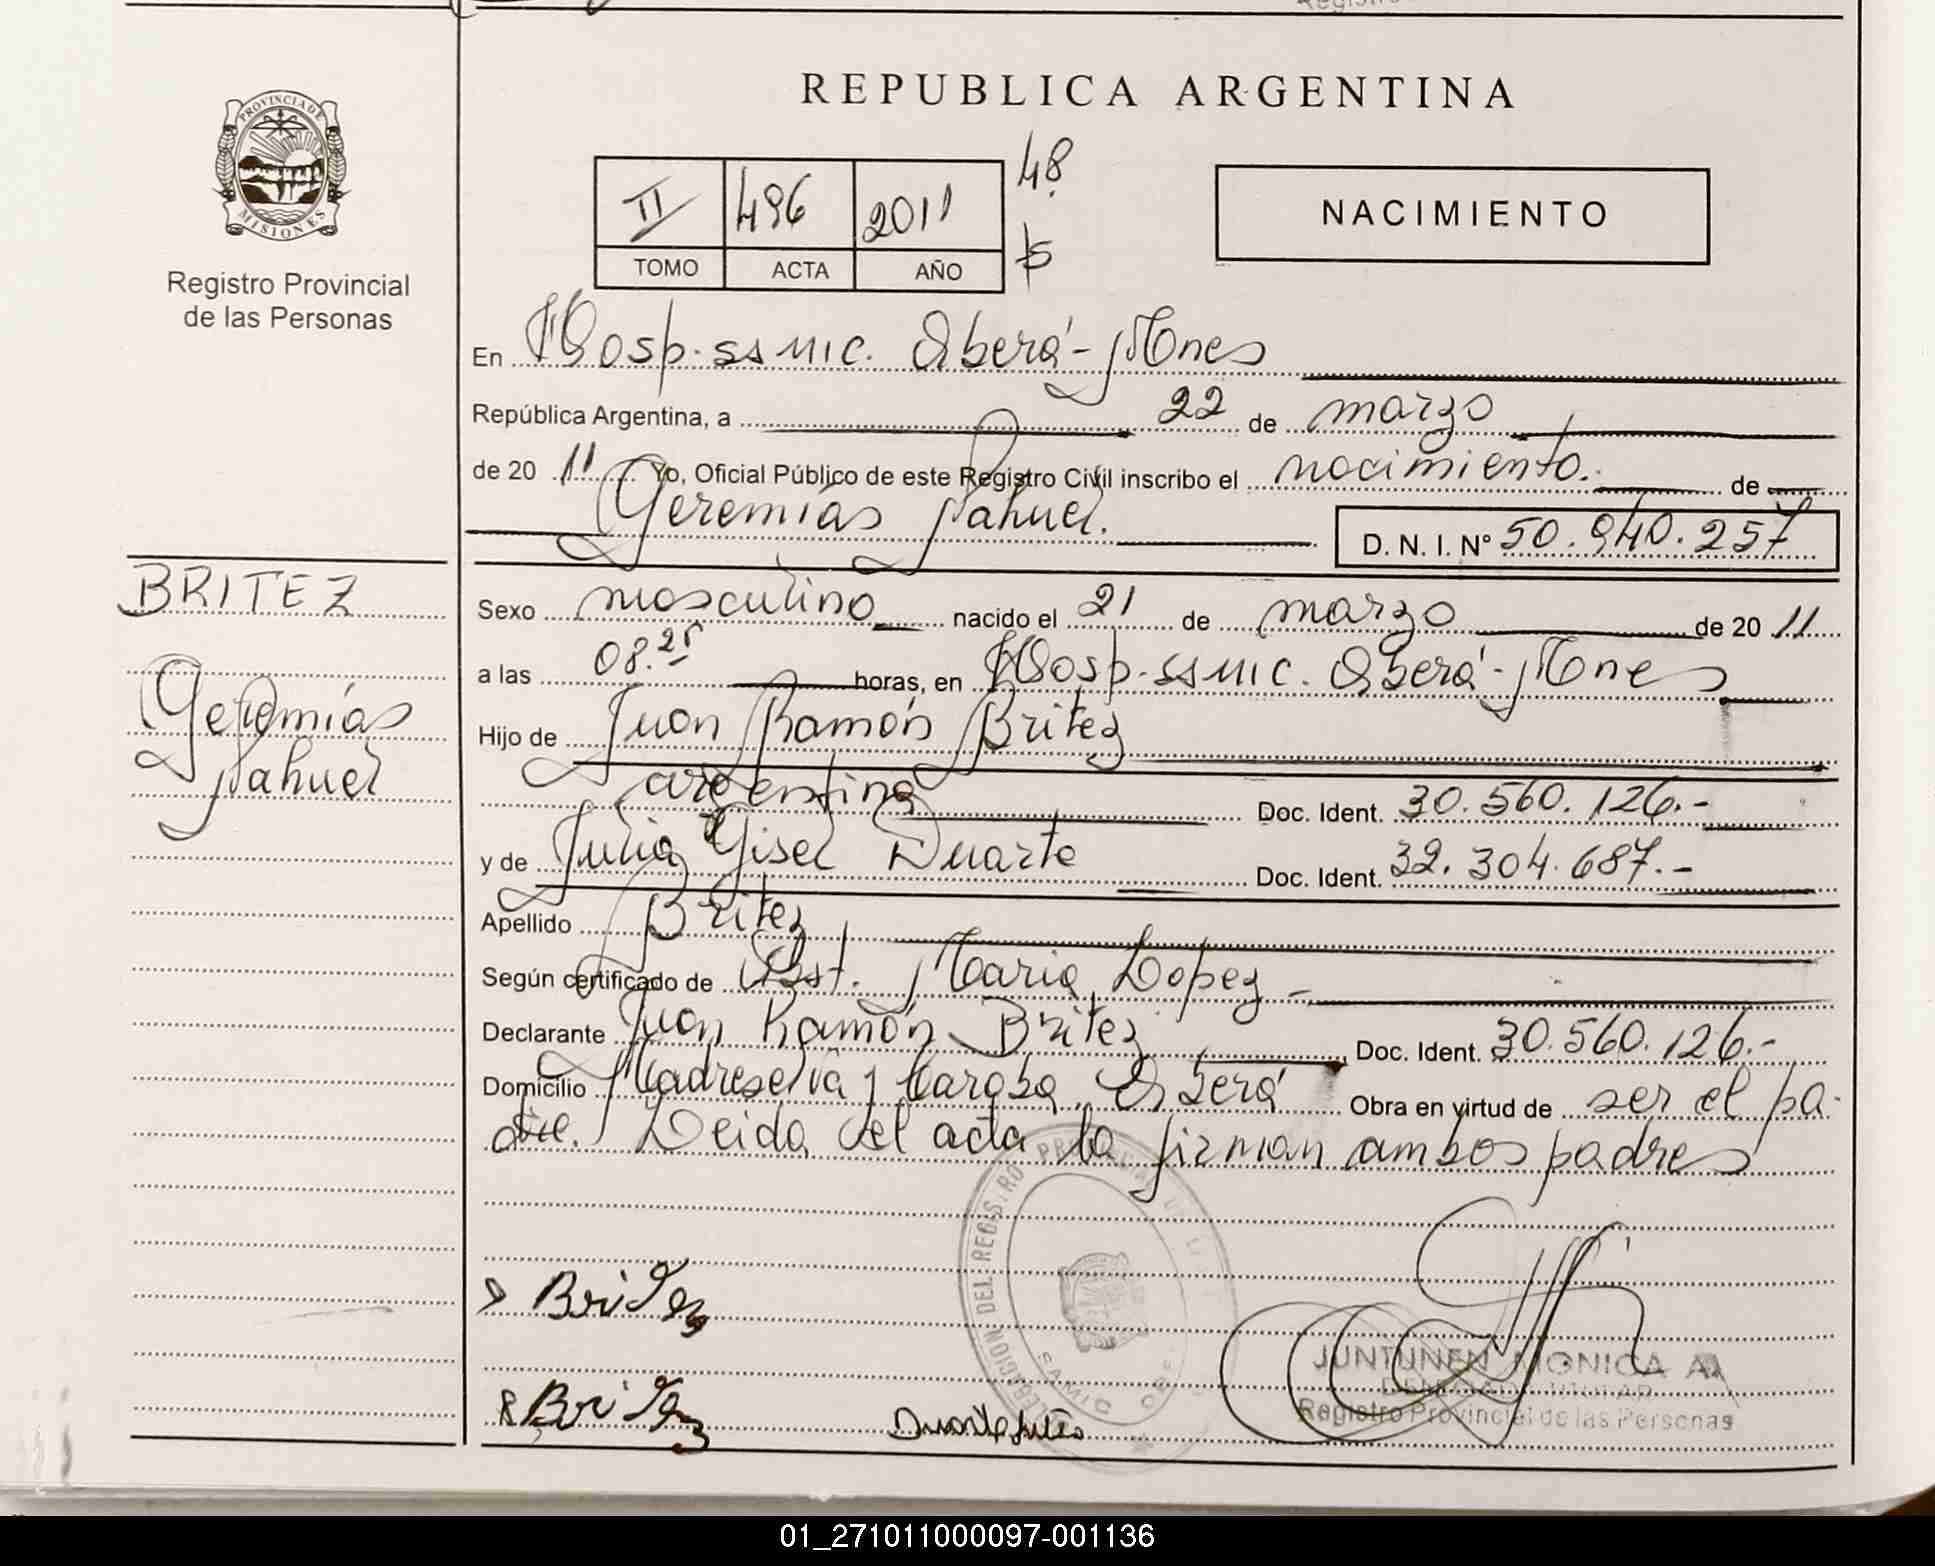 REPUBLICA ARGENTINA
PROVINCIA DE
MISIONES
Registro Provincial
de las Personas
II 496 2011 48
TOMO ACTA AÑO
NACIMIENTO
En Hosp. ss mic. Oberá - Mnes
República Argentina, a 22 de marzo
de 20 11 Yo, Oficial Público de este Registro Civil inscribo el nacimiento. de
Geremías Nahuel.
D. N. I. Nº 50.940.257
BRITEZ
Geremías
Nahuel
Sexo masculino nacido el 21 de marzo de 20 11
a las 08.25 horas, en Hosp. ss mic. Oberá - Mnes
Hijo de Juan Ramón Britez
argentina Doc. Ident. 30.560.126.-
y de Julia Gisel Duarte Doc. Ident. 32.304.687.-
Apellido Britez
Según certificado de Obst. Maria Lopez -
Declarante Juan Ramón Britez Doc. Ident. 30.560.126.-
Domicilio Madreselva y Caroba Oberá Obra en virtud de ser el pa-
dre. Leida del acta la firman ambos padres
Britez
Britez
Duarte Julia
DELEGACION DEL REGISTRO
JUNTUNEN MONICA A
Registro Provincial de las Personas
01_271011000097-001136